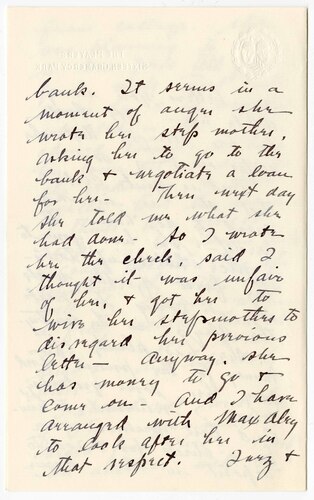 bank. It seems in a
moment of anger she
wrote her step mother,
asking her to go to the
bank & negotiate a loan
for her- Then next day
she told me what she
had done- So I wrote
her the check, said I
thought it was unfair
of her, & got her to
wire her stepmother to
disregard her previous
letter- Anyway, she
has money to go &
come on- And I have
arranged with Max
to look after her in
that respect. &